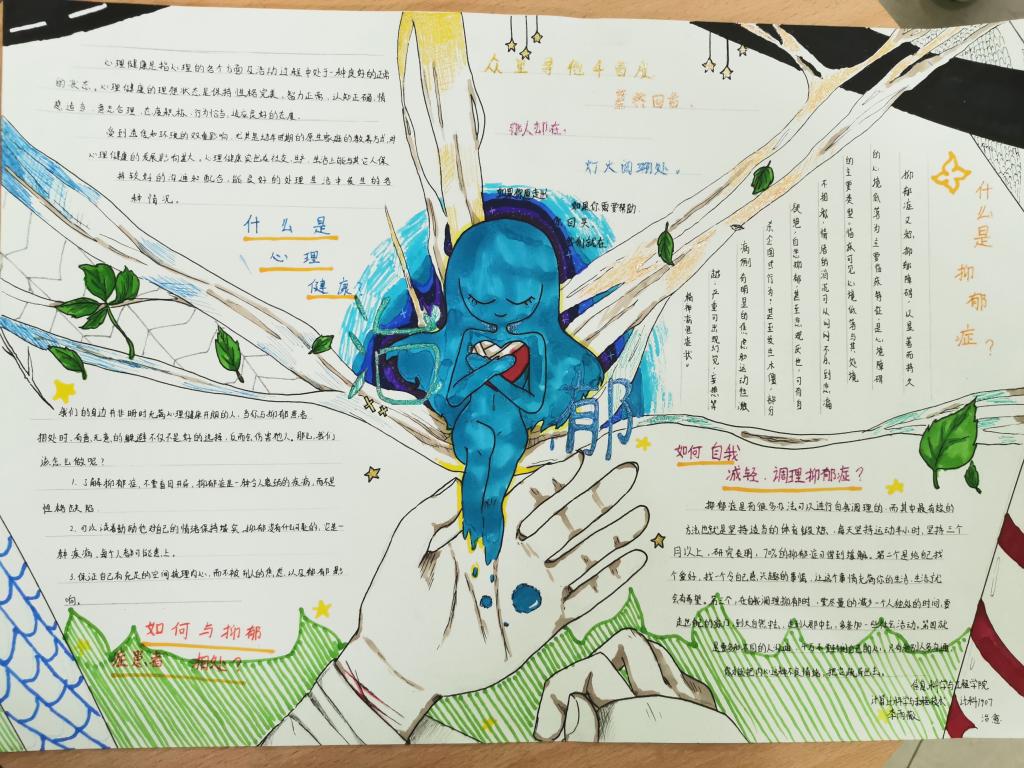 心理健康是指心理的各个方面及活动过程中处于一种良好的正常
的状态。心理健康的理想状态是保持性格完美、智力正常、认知正确、情
感适当、意志合理、态度积极、行为恰当、适应良好的状态。
受到遗传和环境的双重影响,尤其是幼年时期的原生家庭的教养方式,对
心理健康的发展影响甚大。心理健康突出在社交、生产、生活上能与其它人保
持较好的沟通和配合,能良好的处理生活中发生的各
种情况。
什么是
心理
健康?
众里寻他千百度
蓦然回首、
那人却在、
灯火阑珊处。
如果你需要帮助
您回头、
我们就在
什么是抑郁症?
抑郁症又称抑郁障碍,以显著而持久
的心境低落为主要临床特征,是心境障碍
的主要类型。临床可见心境低落与其处境
不相称,情绪的消沉可以从闷闷不乐到悲痛
欲绝,自卑抑郁,甚至悲观厌世,可有自
杀企图或行为;甚至发生木僵;部分
病例有明显的焦虑和运动性激
越;严重可出现幻觉、妄想等
精神病性症状。
抑
郁
我们的身边并非时时充满心理健康开朗的人,当你与抑郁患者
相处时,有意无意的躲避不仅不是好的选择,反而会伤害他人。那么,我们
该怎么做呢?
1.了解抑郁症,不要盲目开启,抑郁症是一种令人悲痛的疾病,而不是
性格缺陷.
2.可以试着鼓励他对自己的情绪保持诚实,抑郁没有什么可耻的,它是一
种疾病,每个人都可能患上。
3.保证自己有充足的空间梳理内心,而不被别人的焦虑以及郁郁影
响。
如何与抑郁
症患者 相处?
如何自我
减轻、调理抑郁症?
抑郁症是有很多办法可以进行自我调理的,而其中最有效的
方法也就是坚持适当的体育锻炼,每天坚持运动半小时,坚持三个
月以上,研究表明,70%的抑郁症可得到缓解。第二个是给自己找
个爱好,找一个令自己感兴趣的事情,让这个事情充满你的生活,生活就
会有希望。第三个,在自我调理抑郁时,要尽量的减少一个人独处的时间,要
走出自己的房门,到大自然中去,走到人群中去,多参加一些社会活动。第四就
信息科学与工程学院
计算机科学与技术 计科1907
李雨薇 治愈